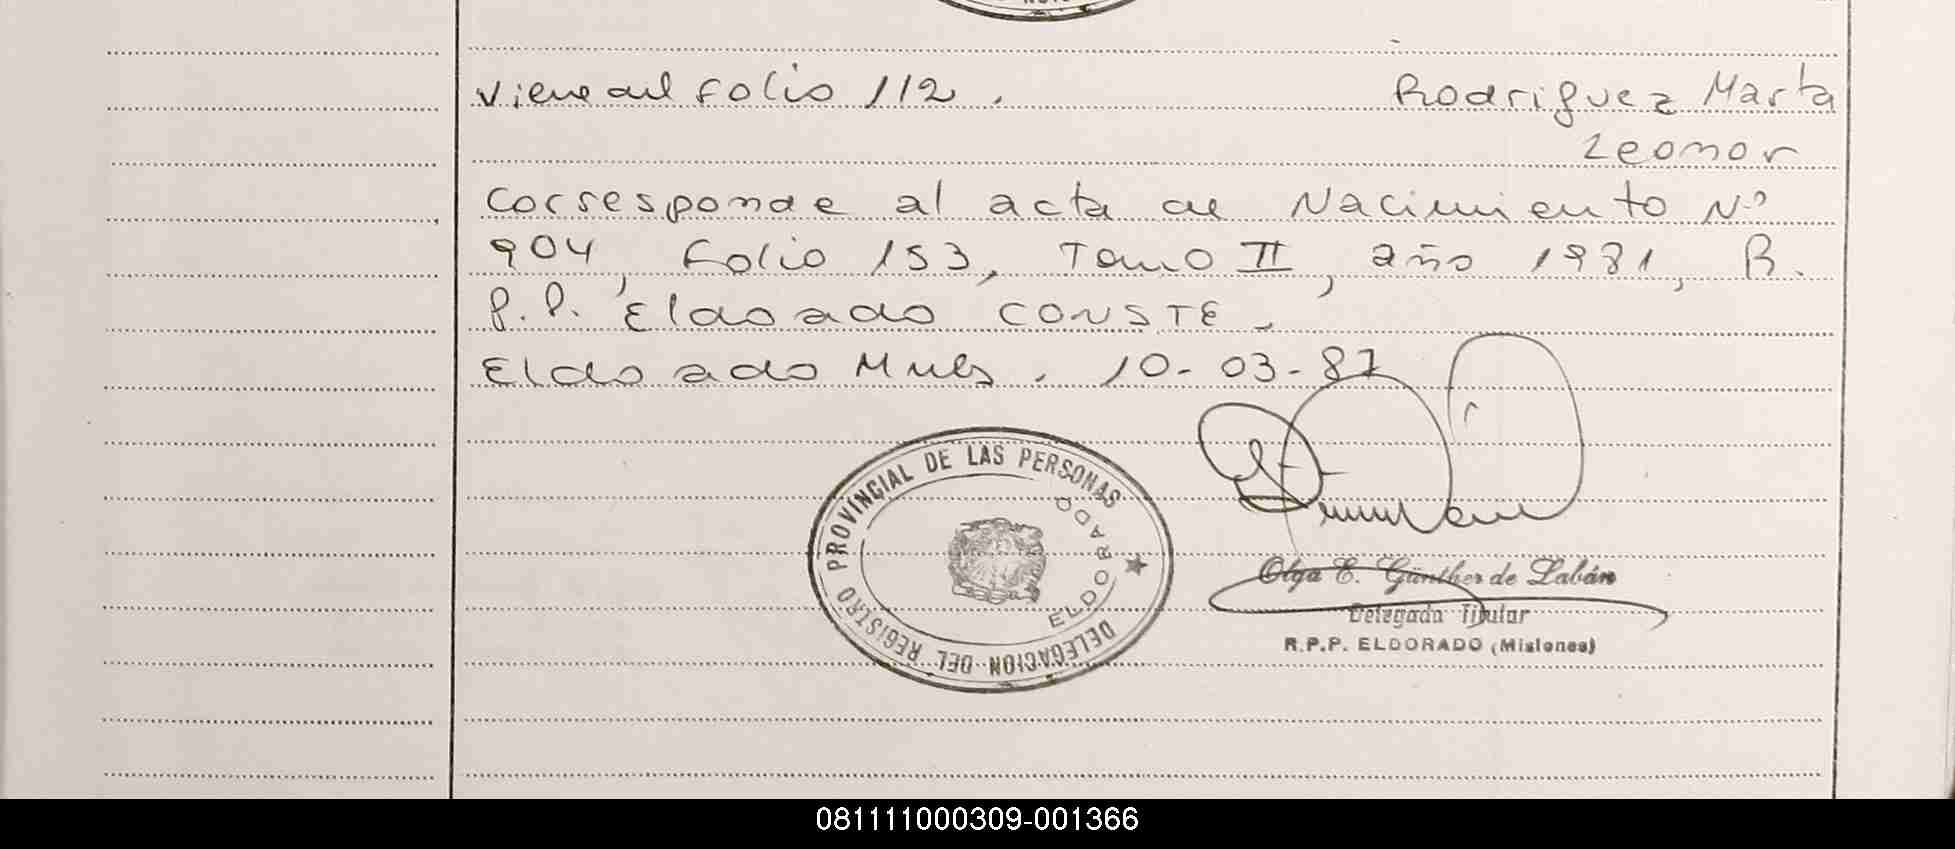 Viene del folio 112. Rodriguez Marta
Leonor
Corresponde al acta de Nacimiento Nº
904, Folio 153, Tomo II, año 1981, R.
P.P. Eldorado CONSTE.
Eldorado Mnes. 10-03-87
DELEGACION DEL REGISTRO PROVINCIAL DE LAS PERSONAS
ELDORADO
Olga E. Günther de Labán
Delegada Titular
R.P.P. ELDORADO (Misiones)
081111000309-001366